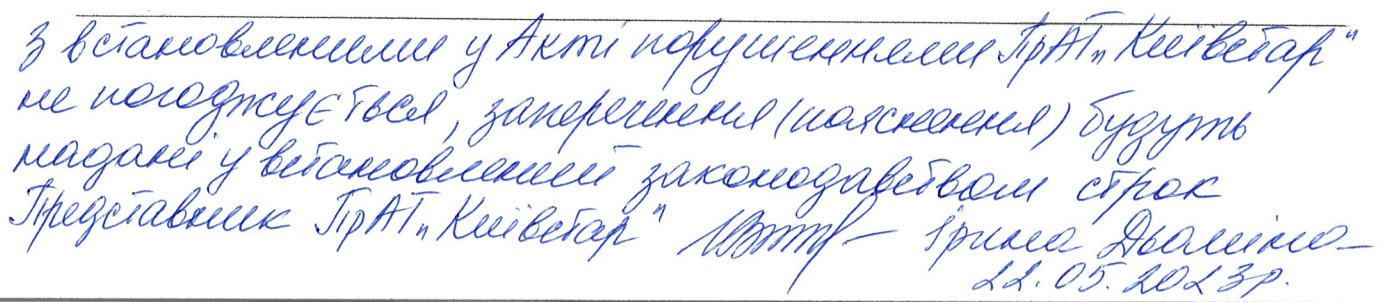 З встановленими у Акті порушеннями ПрАТ „Київстар"
не погоджується, заперечення (пояснення) будуть
надані у встановлений законодавством строк
Представник ПрАТ „Київстар" Ірина Дьоміна
22.05.2023р.